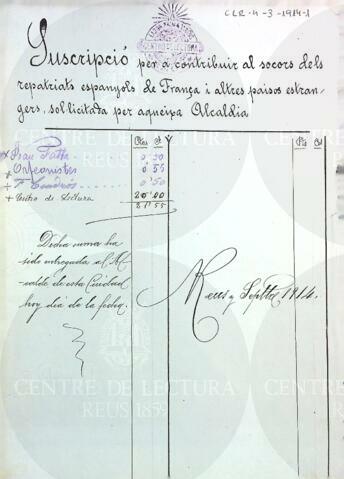 CLR-4-3-1914-1
CENTRO DE LECTURA
Suscripció per á contribuir al socors dels
repatriats espanyols de França i altres països estran-
gers, sol·licitada per aqueixa Alcaldia
Ptes Ct Pts Ct
0'50
+ Orfeonistes 0'55
+ 0'50
+ Centro de Lectura 20'00
21'55
Dicha suma ha
sido entregada al Al-
calde de esta Ciudad
hoy día de la fecha.
Reus y Septbre 1914.
CENTRE DE LECTURA
REUS 1859